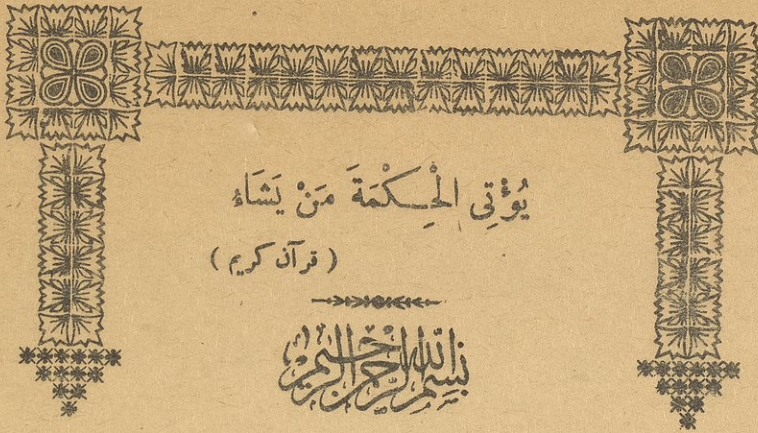 يُؤْتِي الْحِكْمَةَ مَنْ يَشَاءُ
( قرآن كريم )
بسم الله الرحمن الرحيم